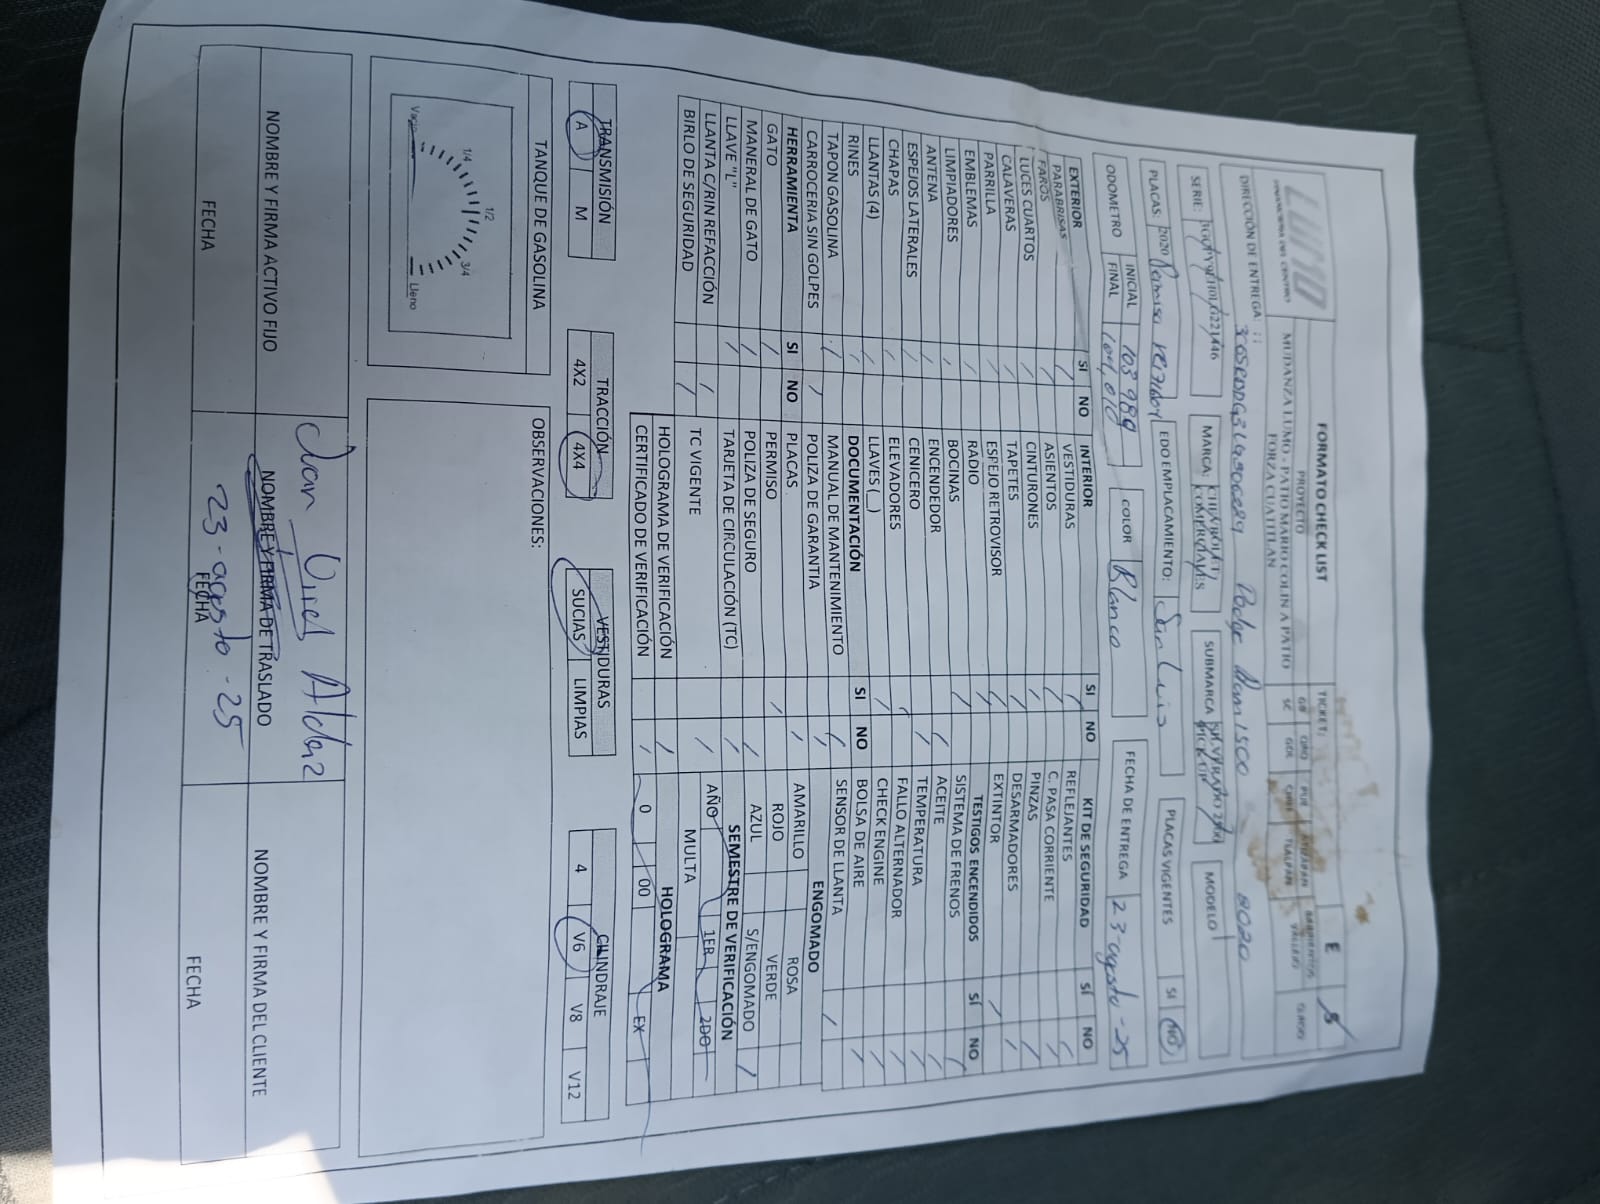 LUMO
FINANCIERA DEL CENTRO
FORMATO CHECK LIST
PROYECTO
MUDANZA LUMO - PATIO MARIO COLIN A PATIO
FORZA CUATITLAN
TICKET:
E
S
GB QRO PUE
SC GDL TLALPAN VALLEJO
DIRECCIÓN DE ENTREGA: ::
Dodge Ram 1500 2020
SERIE:
MARCA: CHEVROLET
SUBMARCA SILVERADO 2500
PICK UP
MODELO
PLACAS: 2020 Permiso
EDO EMPLACAMIENTO: San Luis
PLACAS VIGENTES SI NO
ODOMETRO INICIAL 103989
FINAL 104,010
COLOR Blanco
FECHA DE ENTREGA 23-agosto-25
EXTERIOR SI NO
PARABRISAS
FAROS
LUCES CUARTOS
CALAVERAS
PARRILLA
EMBLEMAS
LIMPIADORES
ANTENA
ESPEJOS LATERALES
CHAPAS
LLANTAS (4)
RINES
TAPON GASOLINA
CARROCERIA SIN GOLPES
HERRAMIENTA SI NO
GATO
MANERAL DE GATO
LLAVE "L"
LLANTA C/RIN REFACCIÓN
BIRLO DE SEGURIDAD
INTERIOR SI NO
VESTIDURAS
ASIENTOS
CINTURONES
TAPETES
ESPEJO RETROVISOR
RADIO
BOCINAS
ENCENDEDOR
CENICERO
ELEVADORES
LLAVES (__)
DOCUMENTACIÓN SI NO
MANUAL DE MANTENIMIENTO
POLIZA DE GARANTIA
PLACAS
PERMISO
POLIZA DE SEGURO
TARJETA DE CIRCULACIÓN (TC)
TC VIGENTE
HOLOGRAMA DE VERIFICACIÓN
CERTIFICADO DE VERIFICACIÓN
KIT DE SEGURIDAD SÍ NO
REFLEJANTES
C. PASA CORRIENTE
PINZAS
DESARMADORES
EXTINTOR
TESTIGOS ENCENDIDOS SÍ NO
SISTEMA DE FRENOS
ACEITE
TEMPERATURA
FALLO ALTERNADOR
CHECK ENGINE
BOLSA DE AIRE
SENSOR DE LLANTA
ENGOMADO
AMARILLO ROSA
ROJO VERDE
AZUL S/ENGOMADO
SEMESTRE DE VERIFICACIÓN
AÑO 1ER 2DO
MULTA
HOLOGRAMA
0 00 EX
TRANSMISIÓN
A M
TRACCIÓN
4X2 4X4
VESTIDURAS
SUCIAS LIMPIAS
CILINDRAJE
4 V6 V8 V12
TANQUE DE GASOLINA
Vacio 1/4 1/2 3/4 Lleno
OBSERVACIONES:
NOMBRE Y FIRMA ACTIVO FIJO
FECHA
NOMBRE Y FIRMA DE TRASLADO
23-agosto-25
FECHA
NOMBRE Y FIRMA DEL CLIENTE
FECHA